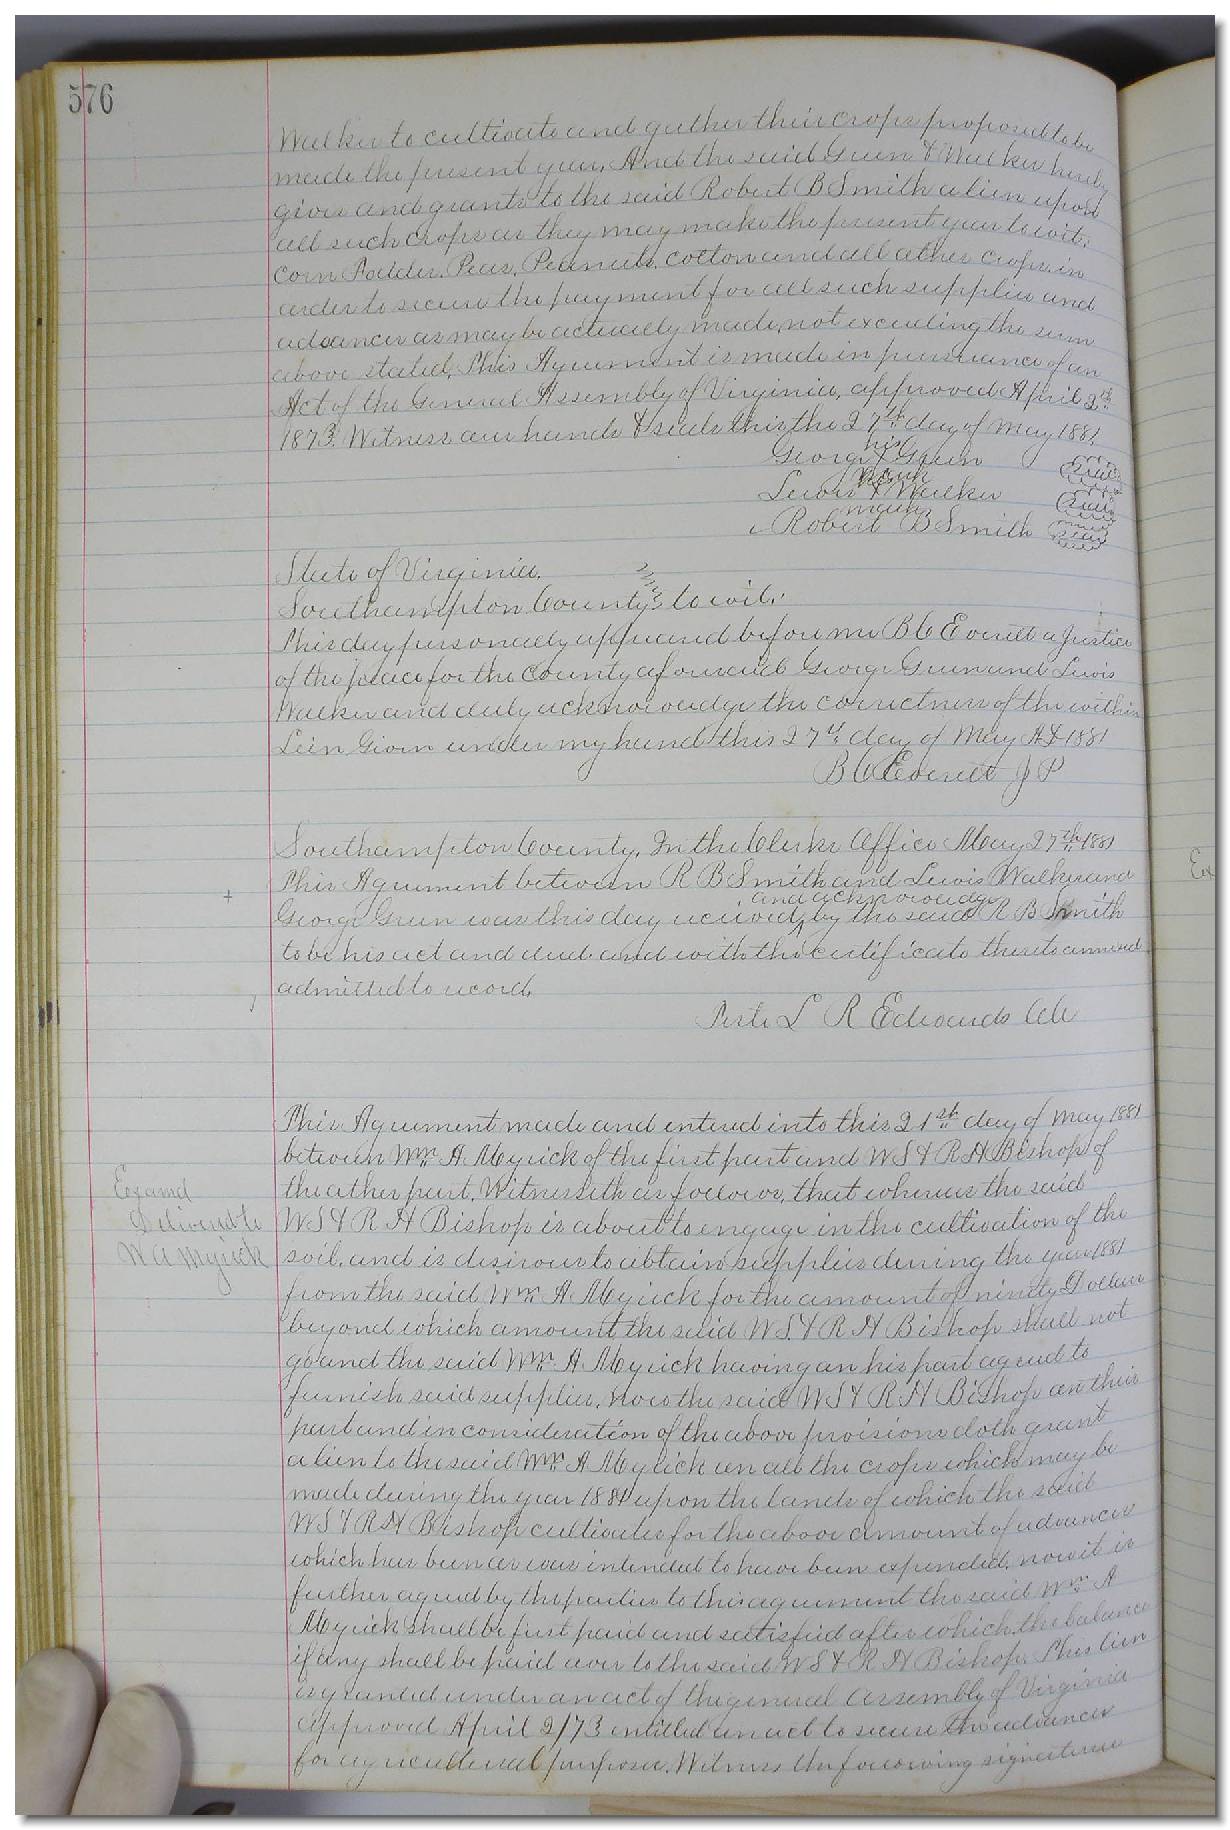 576
Walker to cultivate and gather their crops proposed to be
made the present year, And the said Green & Walker hereby
gives and grants to the said Robert B Smith a lien upon
all such crops as they may make the present year to wit:
Corn Fodder, Peas, Peanuts, Cotton and all other crops, in
order to secure the payment for all such supplies and
advances as may be actually made, not exceeding the sum
above stated. This Agreement is made in pursuance of an
Act of the General Assembly of Virginia, approved April 2nd
1873. Witness our hands & seals this the 27th day of May 1881,
his
George X Green Seal
mark
Lewis X Walker Seal
mark
Robert B Smith Seal
State of Virginia.
Southampton County, to wit:
This day personally appeared before me B C Everett a Justice
of the peace for the County aforesaid George Green and Lewis
Walker and duly acknowledge the correctness of the within
Lien Given under my hand this 27th day of May AD 1881
B C Everett J P
Southampton County, In the Clerks Office May 27th 1881
This Agreement between R B Smith and Lewis Walker and
and acknowledge
George Green was this day received, by the said R B Smith
to be his act and deed and with the certificate thereto annexed
admitted to record,
Teste L R Edwards CC
This Agreement made and entered into this 21st day of May 1881
between Wm A. Myrick of the first part and W S & R H Bishop of
the other part, Witnesseth as follows, that whereas the said
Examd
Delivered to
W A Myrick
W S & R H Bishop is about to engage in the cultivation of the
soil, and is desirous to obtain supplies during the year 1881
from the said Wm A. Myrick for the amount of ninety Dollars
beyond which amount the said W S & R H Bishop shall not
go and the said Wm A. Myrick having on his part agreed to
furnish said supplies, Now the said W S & R H Bishop on their
part and in consideration of the above provisions doth grant
a lien to the said Wm A Myrick on all the crops which may be
made during the year 1881 upon the lands of which the said
W S & R H Bishop cultivates for the above amount of advances
which has been or was intended to have been expended, now it is
further agreed by the parties to this agreement the said Wm A
Myrick shall be first paid and satisfied after which the balance
if any shall be paid over to the said W S & R H Bishop. This lien
is granted under an act of the general assembly of Virginia
approved April 2/73 entitled an act to secure the advances
for agricultural purposes. Witness the following signatures